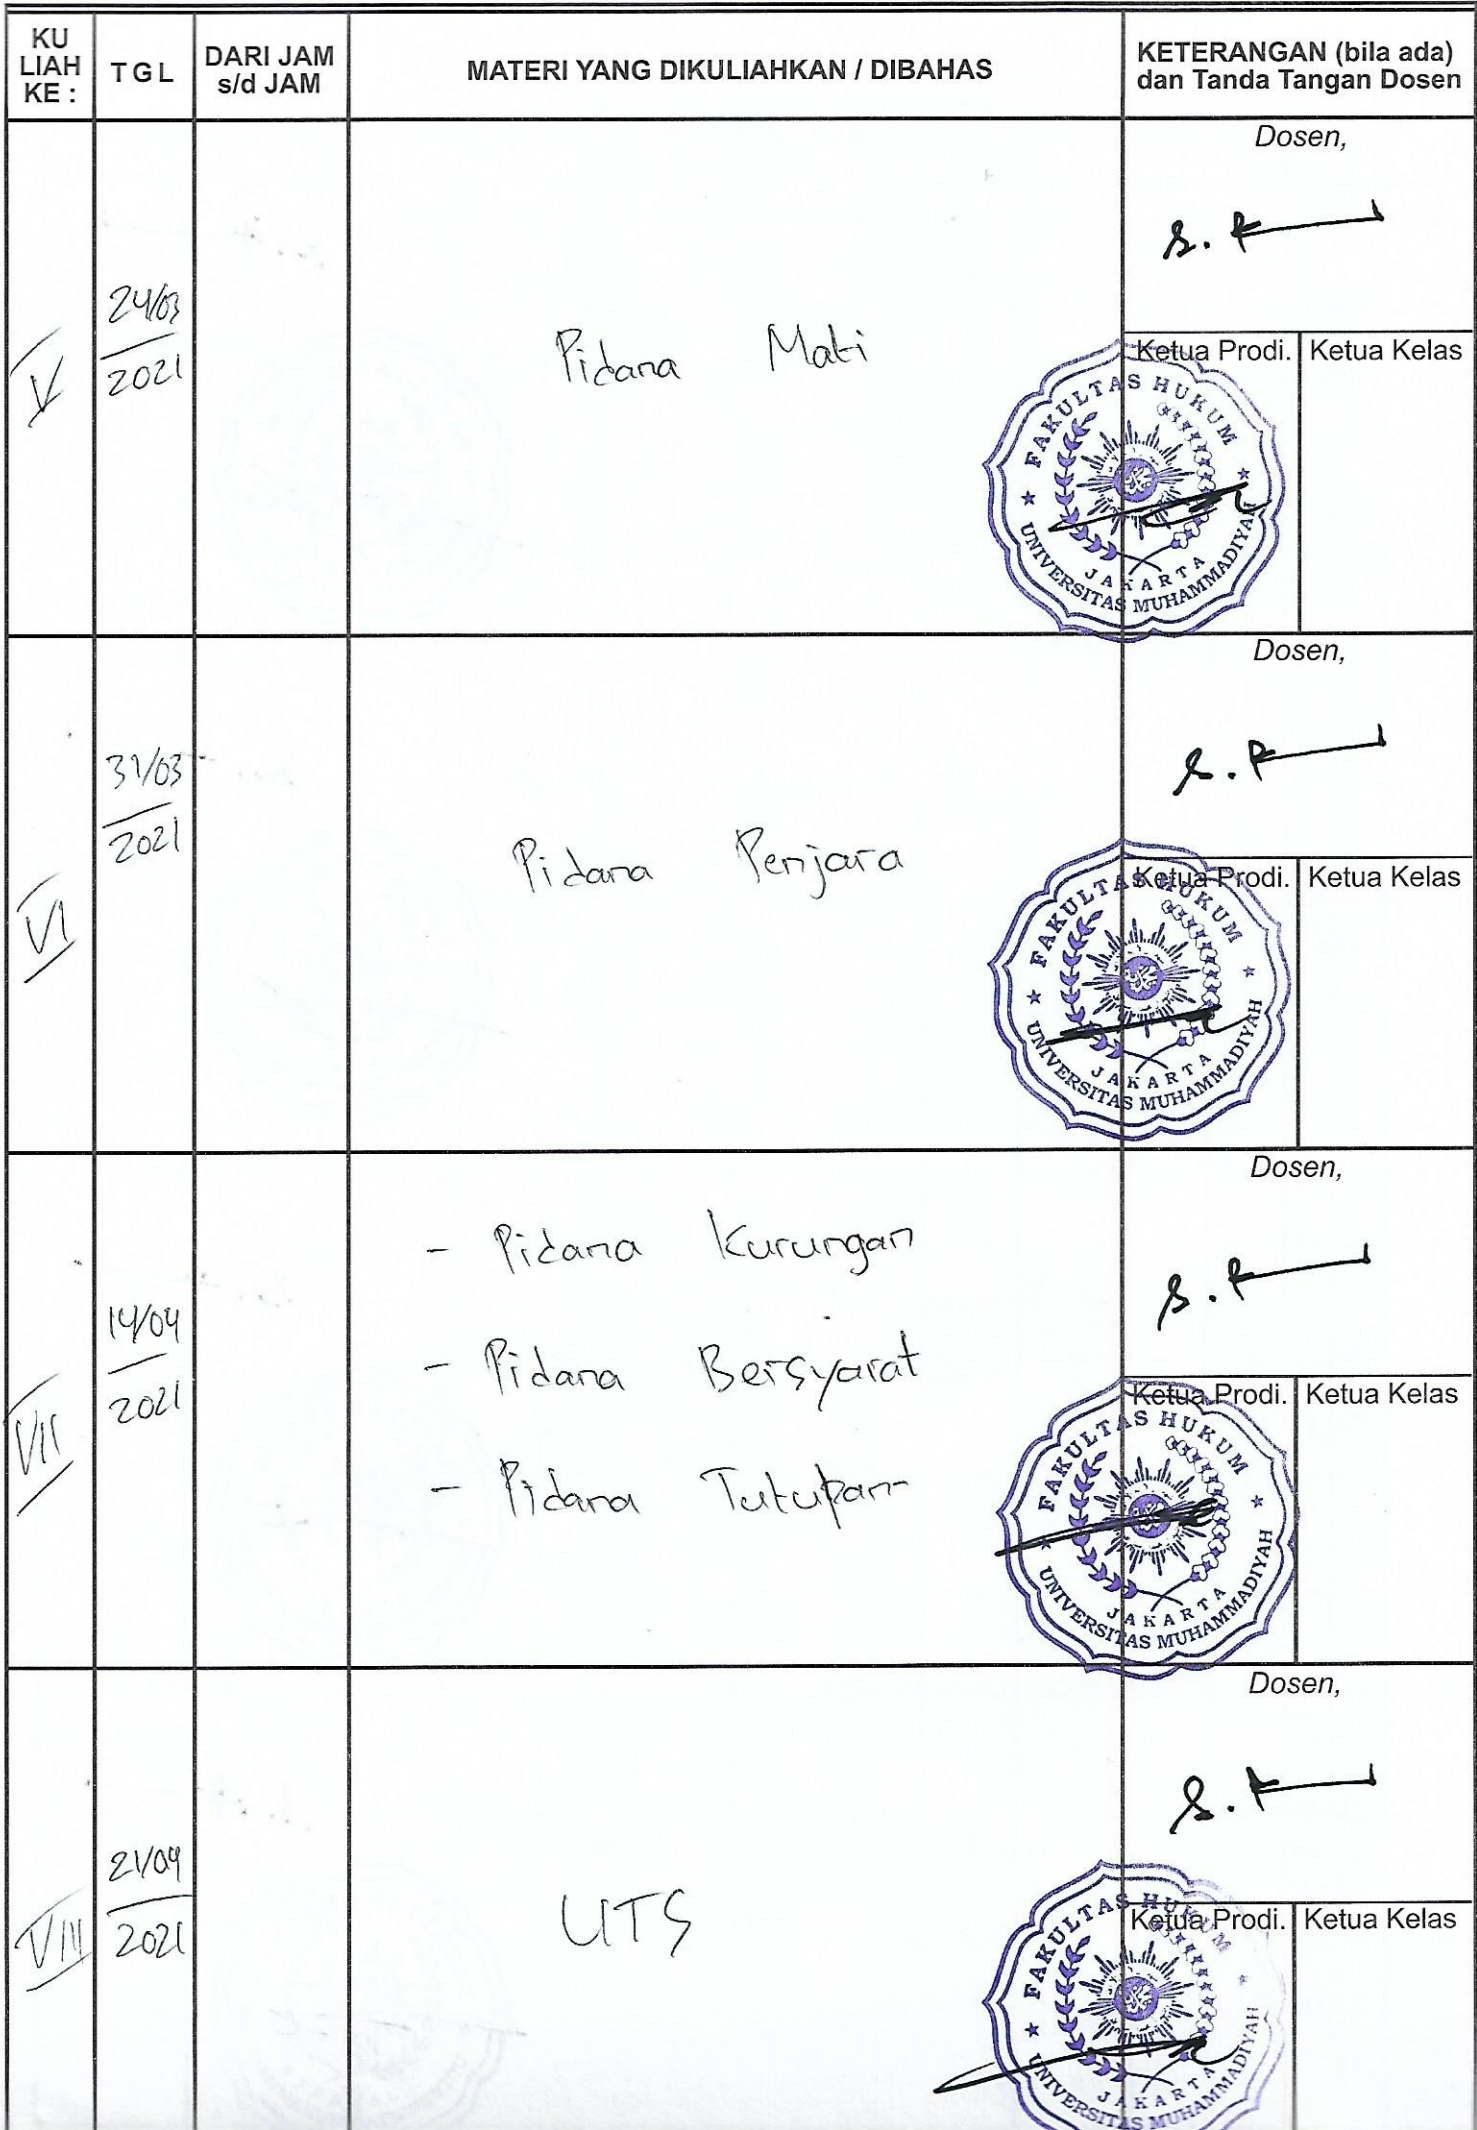 KU LIAH KE :
TGL
DARI JAM s/d JAM
MATERI YANG DIKULIAHKAN / DIBAHAS
KETERANGAN (bila ada) dan Tanda Tangan Dosen
V
24/03
2021
Pidana Mati
Dosen,
Ketua Prodi.
Ketua Kelas
FAKULTAS HUKUM
UNIVERSITAS MUHAMMADIYAH
JAKARTA
VI
31/03
2021
Pidana Penjara
Dosen,
Ketua Prodi.
Ketua Kelas
FAKULTAS HUKUM
UNIVERSITAS MUHAMMADIYAH
JAKARTA
VII
14/04
2021
- Pidana Kurungan
- Pidana Bersyarat
- Pidana Tutupan
Dosen,
Ketua Prodi.
Ketua Kelas
FAKULTAS HUKUM
UNIVERSITAS MUHAMMADIYAH
JAKARTA
VIII
21/04
2021
UTS
Dosen,
Ketua Prodi.
Ketua Kelas
FAKULTAS HUKUM
UNIVERSITAS MUHAMMADIYAH
JAKARTA